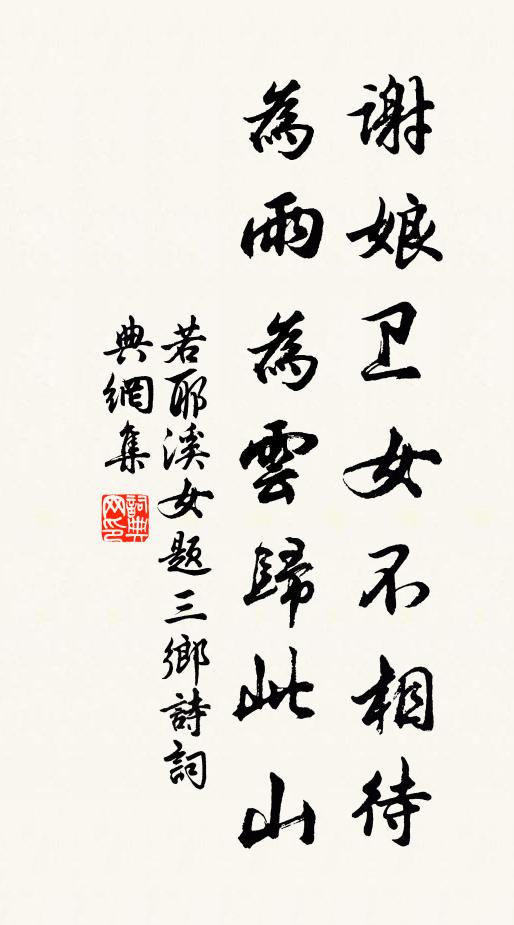 谢娘卫女不相待
為雨為雲歸此山
若耶溪女題三鄉詩詞
典網集
詞典網印